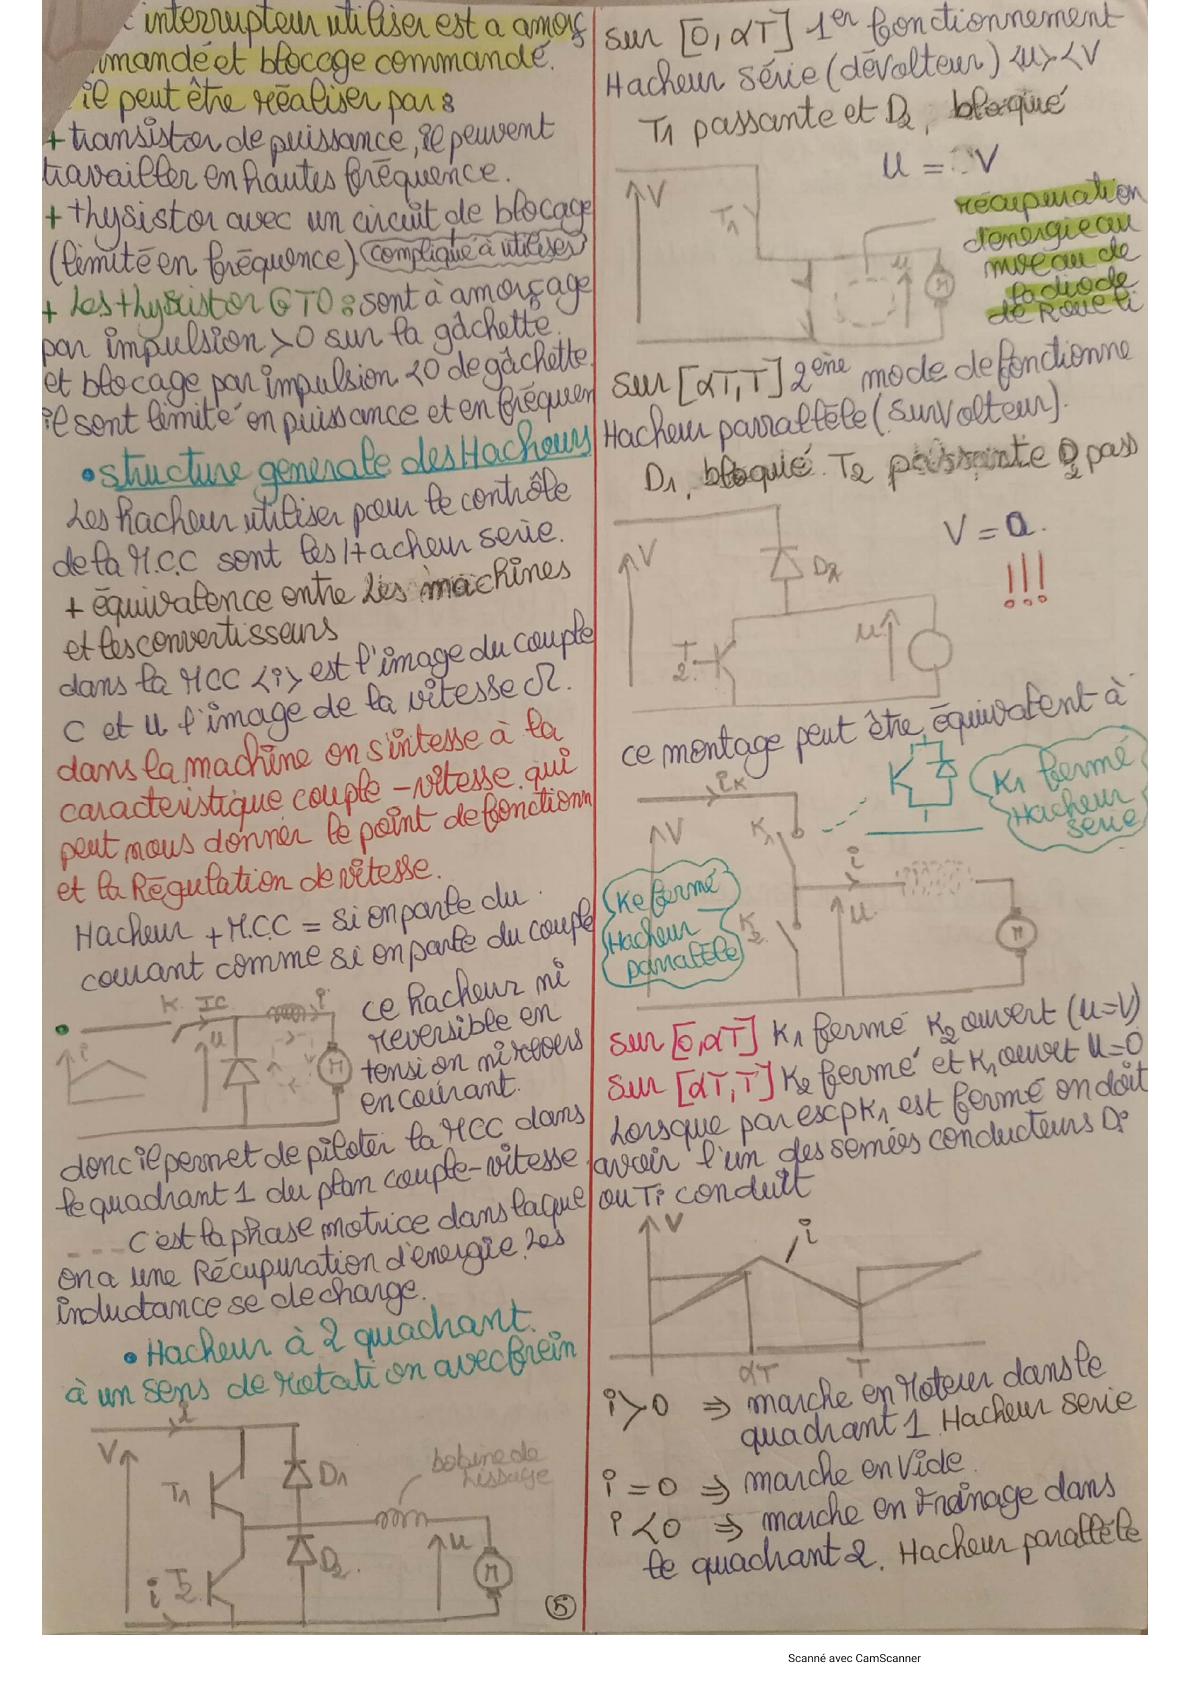 interrupteur utiliser est a amorç
mandé et blocage commandé.
il peut être réaliser par :
+ transistor de puissance, il peuvent
travailler en hautes fréquence.
+ thysistor avec un circuit de blocage
(limité en fréquence) compliqué à utiliser
+ Les thysistor GTO : sont à amorçage
par impulsion >0 sur la gâchette.
et blocage par impulsion <0 de gâchette.
il sont limité en puissance et en fréquen
• structure generale des Hacheurs
Les hacheur utiliser pour le contrôle
de la M.C.C sont les Hacheur serie.
+ équivalence entre les machines
et les convertisseurs
dans la MCC <i> est l'image du couple
C et u l'image de la vitesse Ω.
dans la machine on s'intesse à la
caracteristique couple - vitesse qui
peut nous donner le point de fonctionn
et la Régulation de vitesse.
Hacheur + M.C.C = si on parle du
courant comme si on parle du couple
K. IC i
u
i
M
ce hacheur ni
reversible en
tension ni revers
en courant.
donc il permet de piloter la MCC dans
le quadrant 1 du plan couple-vitesse
--- c'est la phase motrice dans laque
on a une Récupuration d'energie. Les
inductance se decharge.
• Hacheur à 2 quadrant
à un sens de rotation avec frein
i
V
T1
D1
bobine de
lissage
T2
D2
u
M
i
5
sur [0, αT] 1er fonctionnement
Hacheur série (dévolteur) <u> < V
T1 passante et D2, bloqué
u = V
V
T1
u
M
récuperation
d'energie au
niveau de
la diode
de Roue li
sur [αT, T] 2ème mode de fonctionne
Hacheur parrallèle (survolteur).
D1, bloquié. T2 passante D2 pass
V = 0.
!!!
V
D2
T2
u
ce montage peut être équivalent à
iK
K
K1 fermé
Hacheur
serie
V
K1
i
Ke fermé
Hacheur
parralèle
K2
u
M
sur [0, αT] K1 fermé K2 ouvert (u=V)
sur [αT, T] K2 fermé et K1 ouvert u=0
Lorsque par escp K1 est fermé on doit
avoir l'un des semées conducteurs Di
ou Ti conduit
V
i
αT
T
i>0 ⇒ marche en Moteur dans le
quadrant 1 Hacheur serie
i=0 ⇒ marche en Vide.
i<0 ⇒ marche en Frainage dans
le quadrant 2. Hacheur parallèle
Scanné avec CamScanner